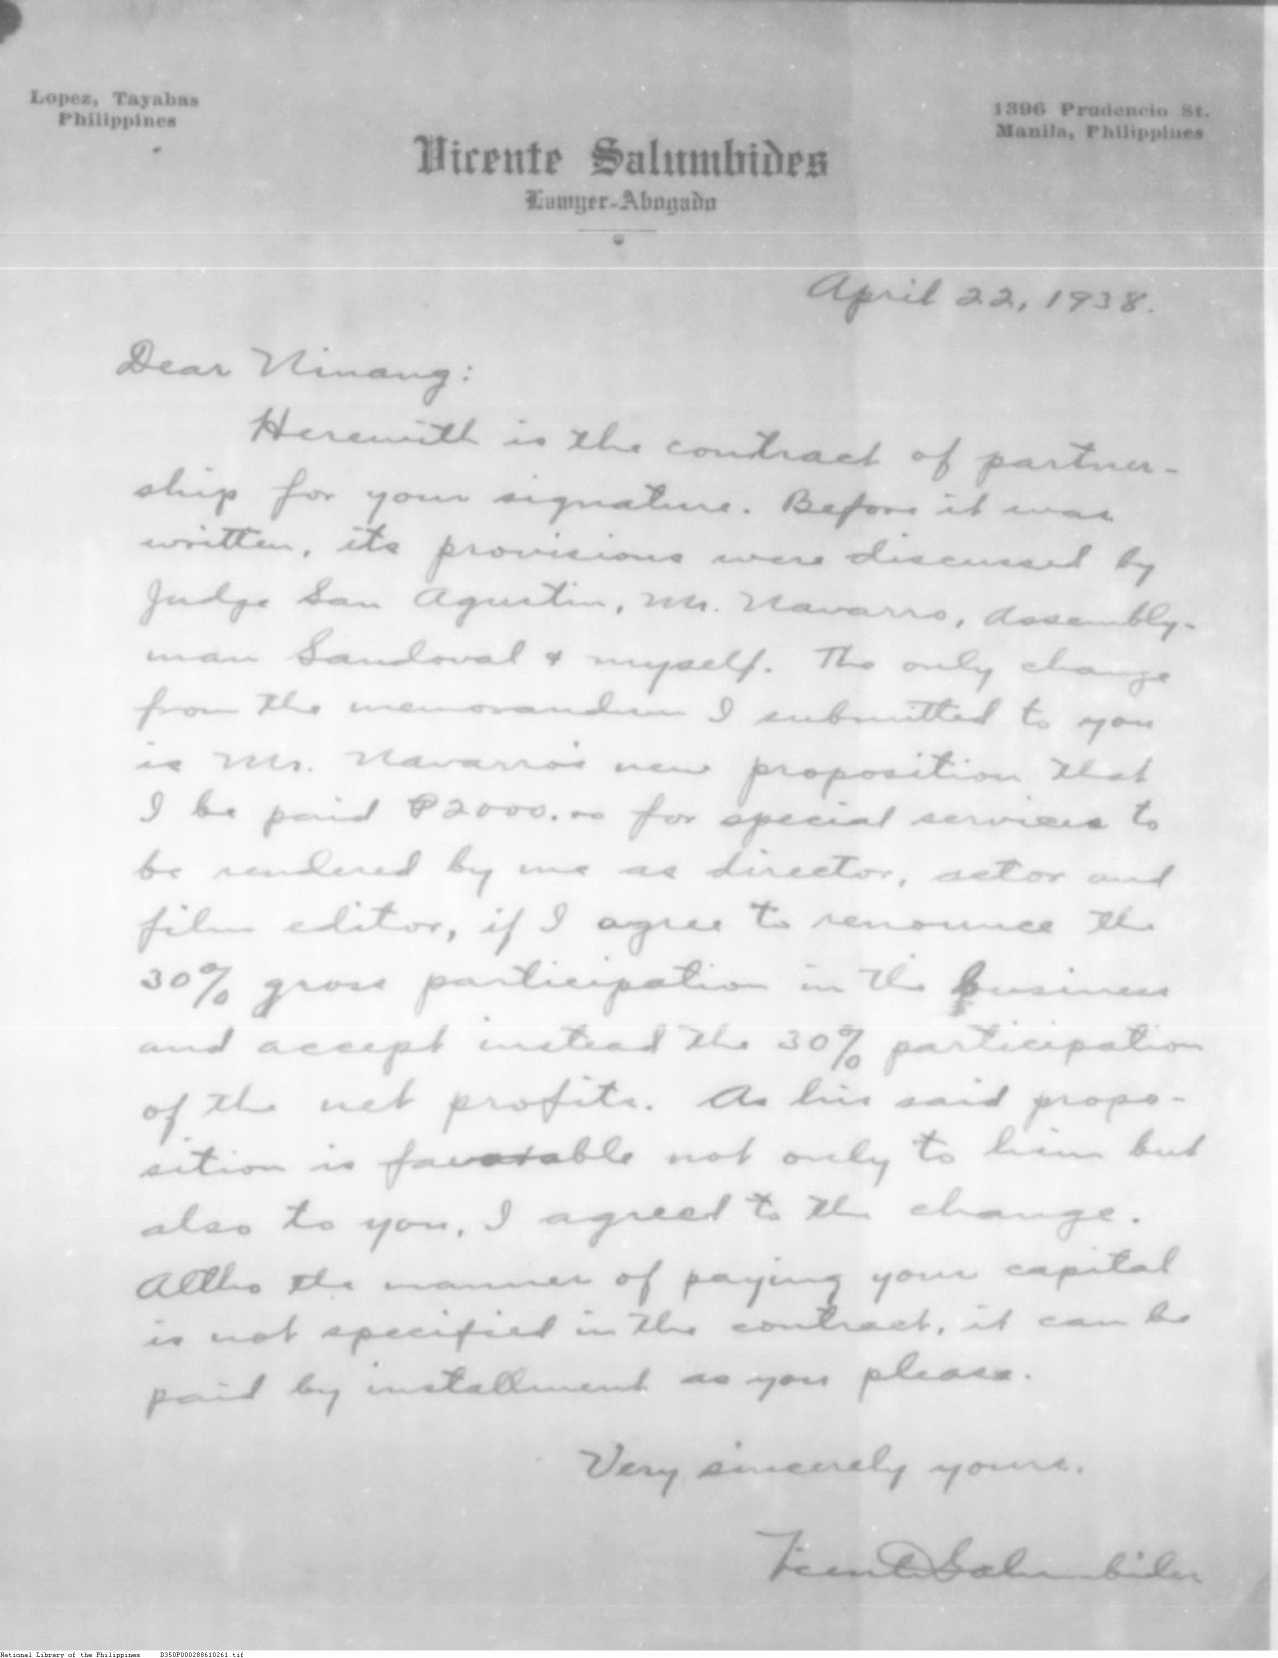 Lopez, Tayabas
Philippines
1396 Prudencio St.
Manila, Philippines
Vicente Salumbides
Lawyer-Abogado
April 22, 1938.
Dear Ninang:
Herewith is the contract of partner-
ship for your signature. Before it was
written, its provisions were discussed by
Judge San Agustin, Mr. Navarro, Assembly-
man Sandoval & myself. The only change
from the memorandum I submitted to you
is Mr. Navarro's new proposition that
I be paid ₱2000.00 for special services to
be rendered by me as director, actor and
film editor, if I agree to renounce the
30% gross participation in the business
and accept instead the 30% participation
of the net profits. As his said propo-
sition is favorable not only to him but
also to you, I agreed to the change.
Altho the manner of paying your capital
is not specified in the contract, it can be
paid by installment as you please.
Very sincerely yours,
Vicente Salumbides
National Library of the Philippines D350P000288610261.tif